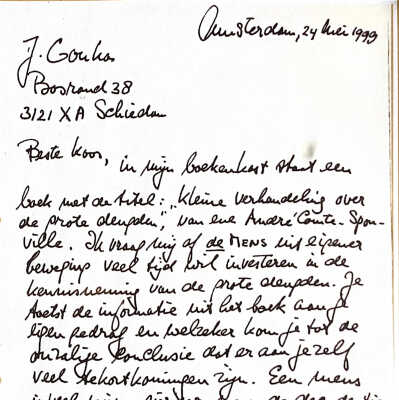 Amsterdam, 24 Mei 1999
J. Gonkos
Bosrand 38
3121 XA Schiedam
Beste Koos,
in mijn boekenkast staat een
boek met de titel: "Kleine verhandeling over
de grote deugden", van ene André Comte-Spon-
ville. Ik vraag mij af de MENS uit eigener
beweging veel tijd wil investeren in de
kennisneming van de grote deugden. Je
toetst de informatie uit het boek aan je
eigen gedrag en welzeker kom je tot de
conclusie dat er aan jezelf
veel tekortkomingen zijn. Een mens